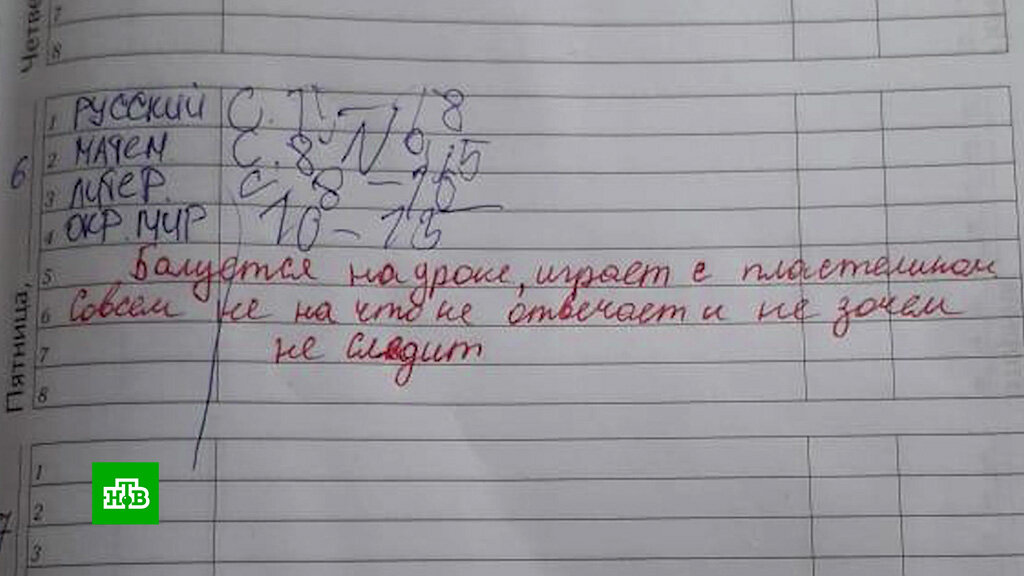 Четве
7
8
Пятница, 6
1 РУССКИЙ С.
2 МАТЕМ С. 8 N
3 ЛИТЕР. С. 8 –
4 ОКР. МИР 10 – 13
5 Балуется на уроке, играет с пластелином
6 Совсем не на что не отвечает и не зочем
7 не следит
8
7
1
2
3
НТВ